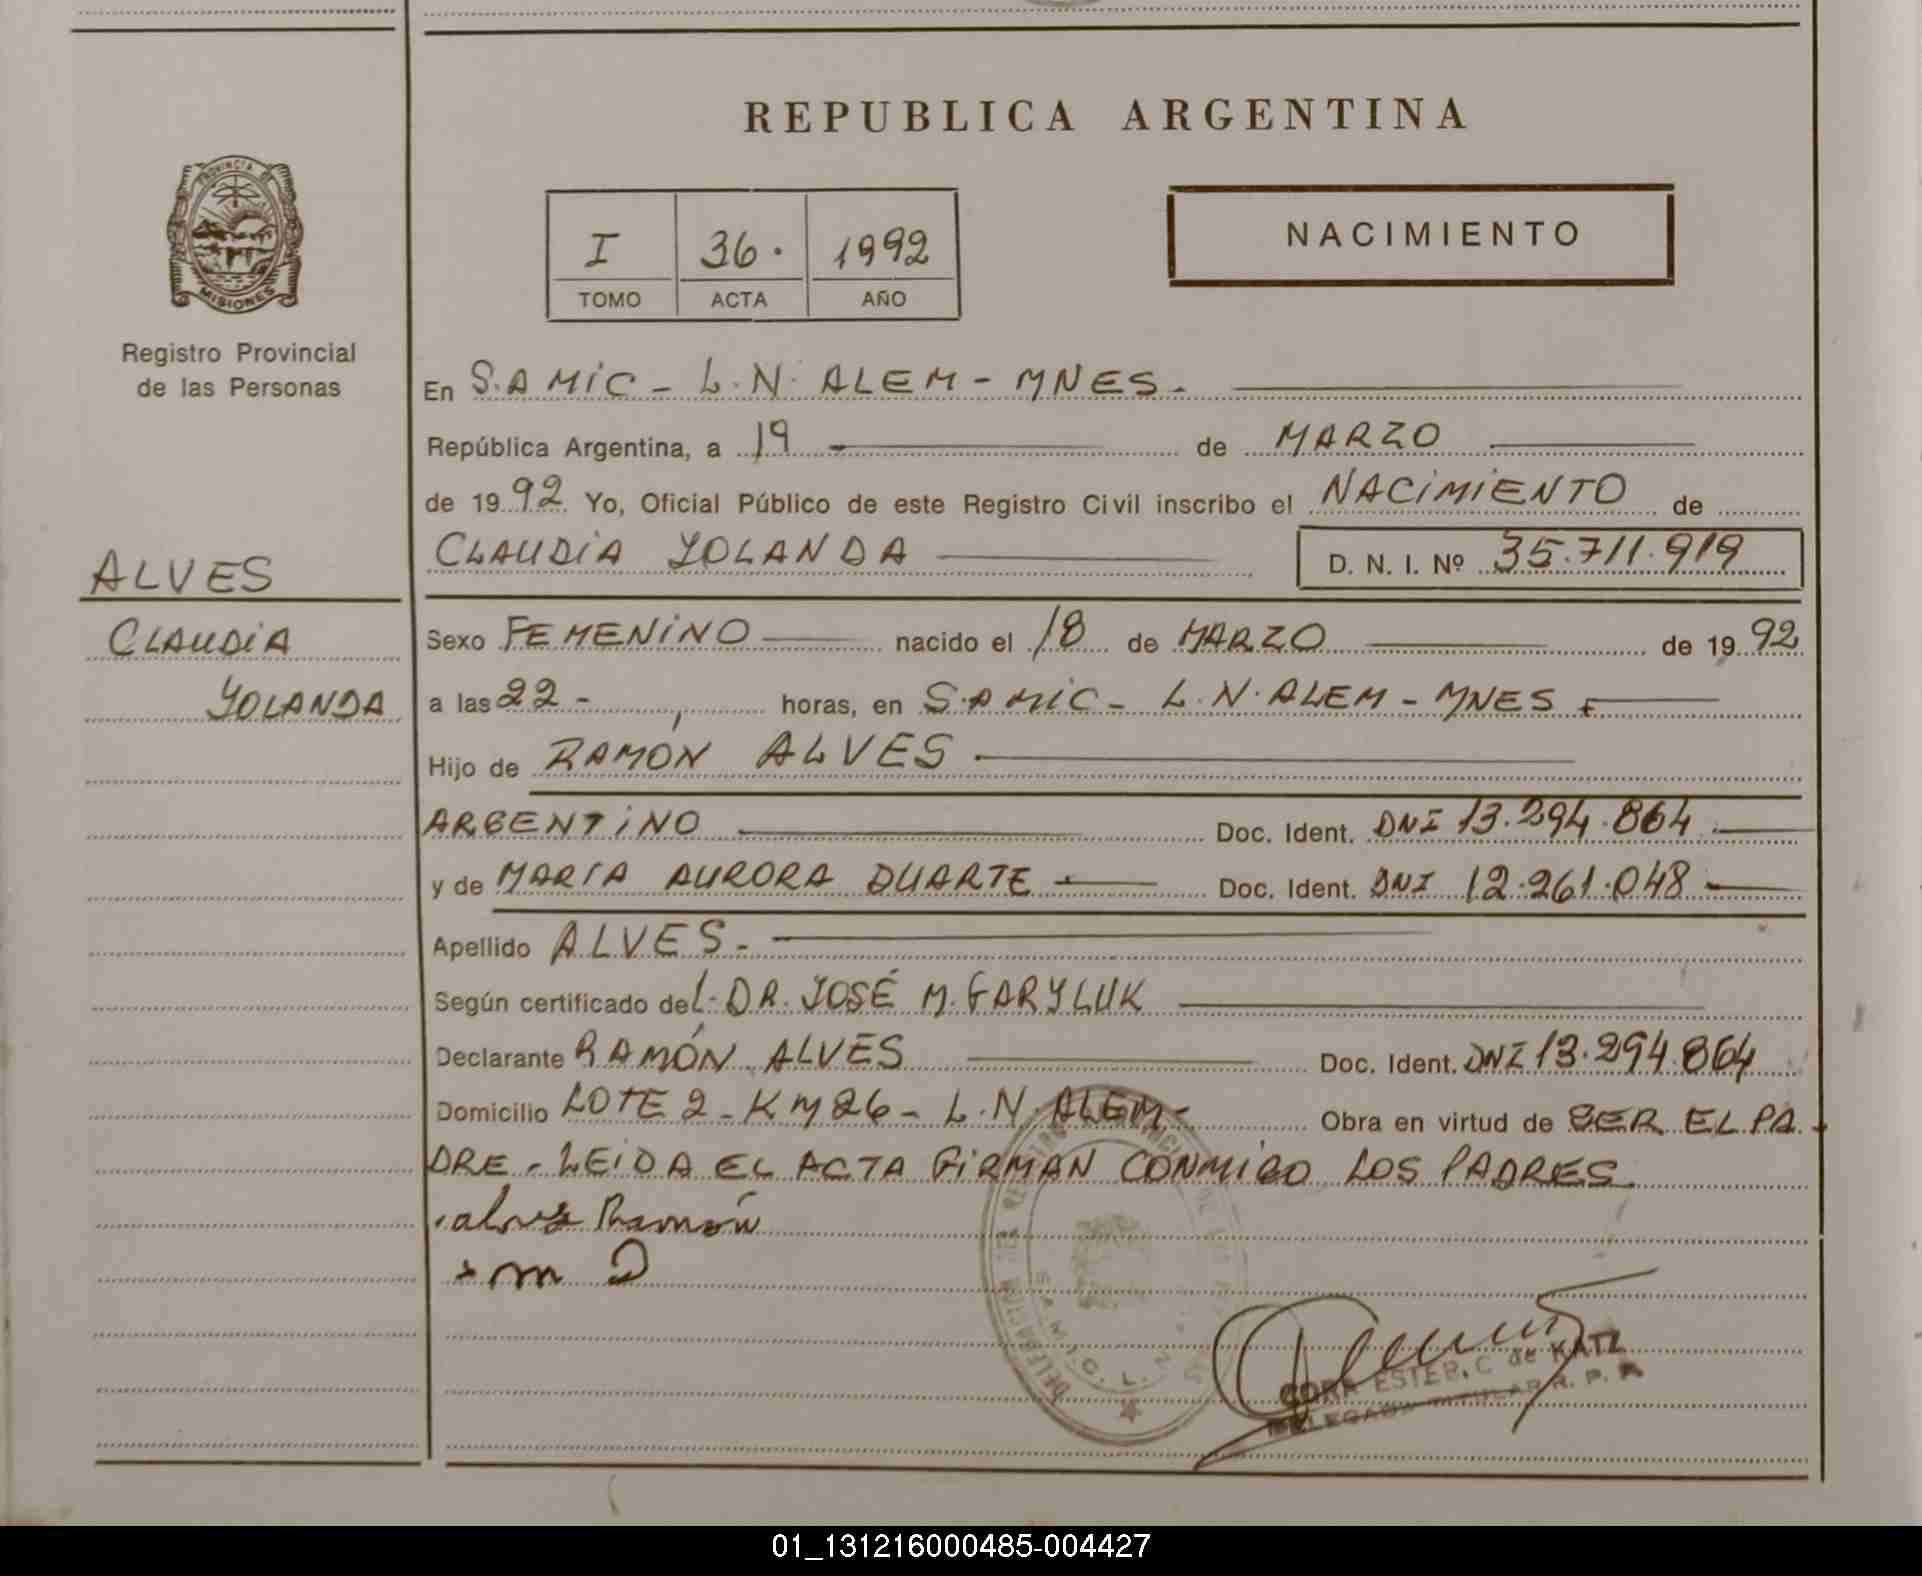 REPUBLICA ARGENTINA
PROVINCIA DE
MISIONES
Registro Provincial
de las Personas
I 36. 1992
TOMO ACTA AÑO
NACIMIENTO
En S.A MIC - L.N. ALEM - MNES -
República Argentina, a 19 - de MARZO
de 1992 Yo, Oficial Público de este Registro Civil inscribo el NACIMIENTO de
CLAUDIA YOLANDA D. N. I. Nº 35.711.919
ALVES
CLAUDIA
YOLANDA
Sexo FEMENINO nacido el 18 de MARZO de 1992
a las 22 - horas, en S.A MIC - L.N. ALEM - MNES -
Hijo de RAMÓN ALVES
ARGENTINO Doc. Ident. DNI 13.294.864
y de MARÍA AURORA DUARTE - Doc. Ident. DNI 12.261.048
Apellido ALVES -
Según certificado del DR. JOSÉ M. GARYLUK
Declarante RAMÓN ALVES Doc. Ident. DNI 13.294.864
Domicilio LOTE 2 - KM 26 - L.N. ALEM - Obra en virtud de SER EL PA-
DRE - LEIDA EL ACTA FIRMAN CONMIGO LOS PADRES
Alves Ramón
m D
ESTER C de KATZ
TITULAR R. P. P.
01_131216000485-004427